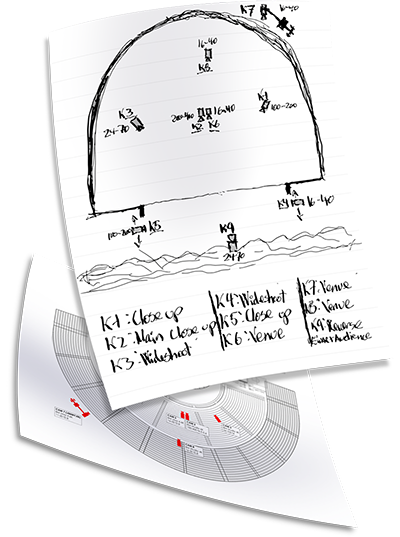 K7
16-40
16-40
K8
K3
24-70
200-400
16-40
K2
K6
K1
100-200
100-200
K5
K4
16-40
K9
24-70
K1: Close up
K2: Main Close up
K3: Wideshoot
K4: Wideshoot
K5: Close up
K6: Venue
K7: Venue
K8: Venue
K9: Reverse
Audience